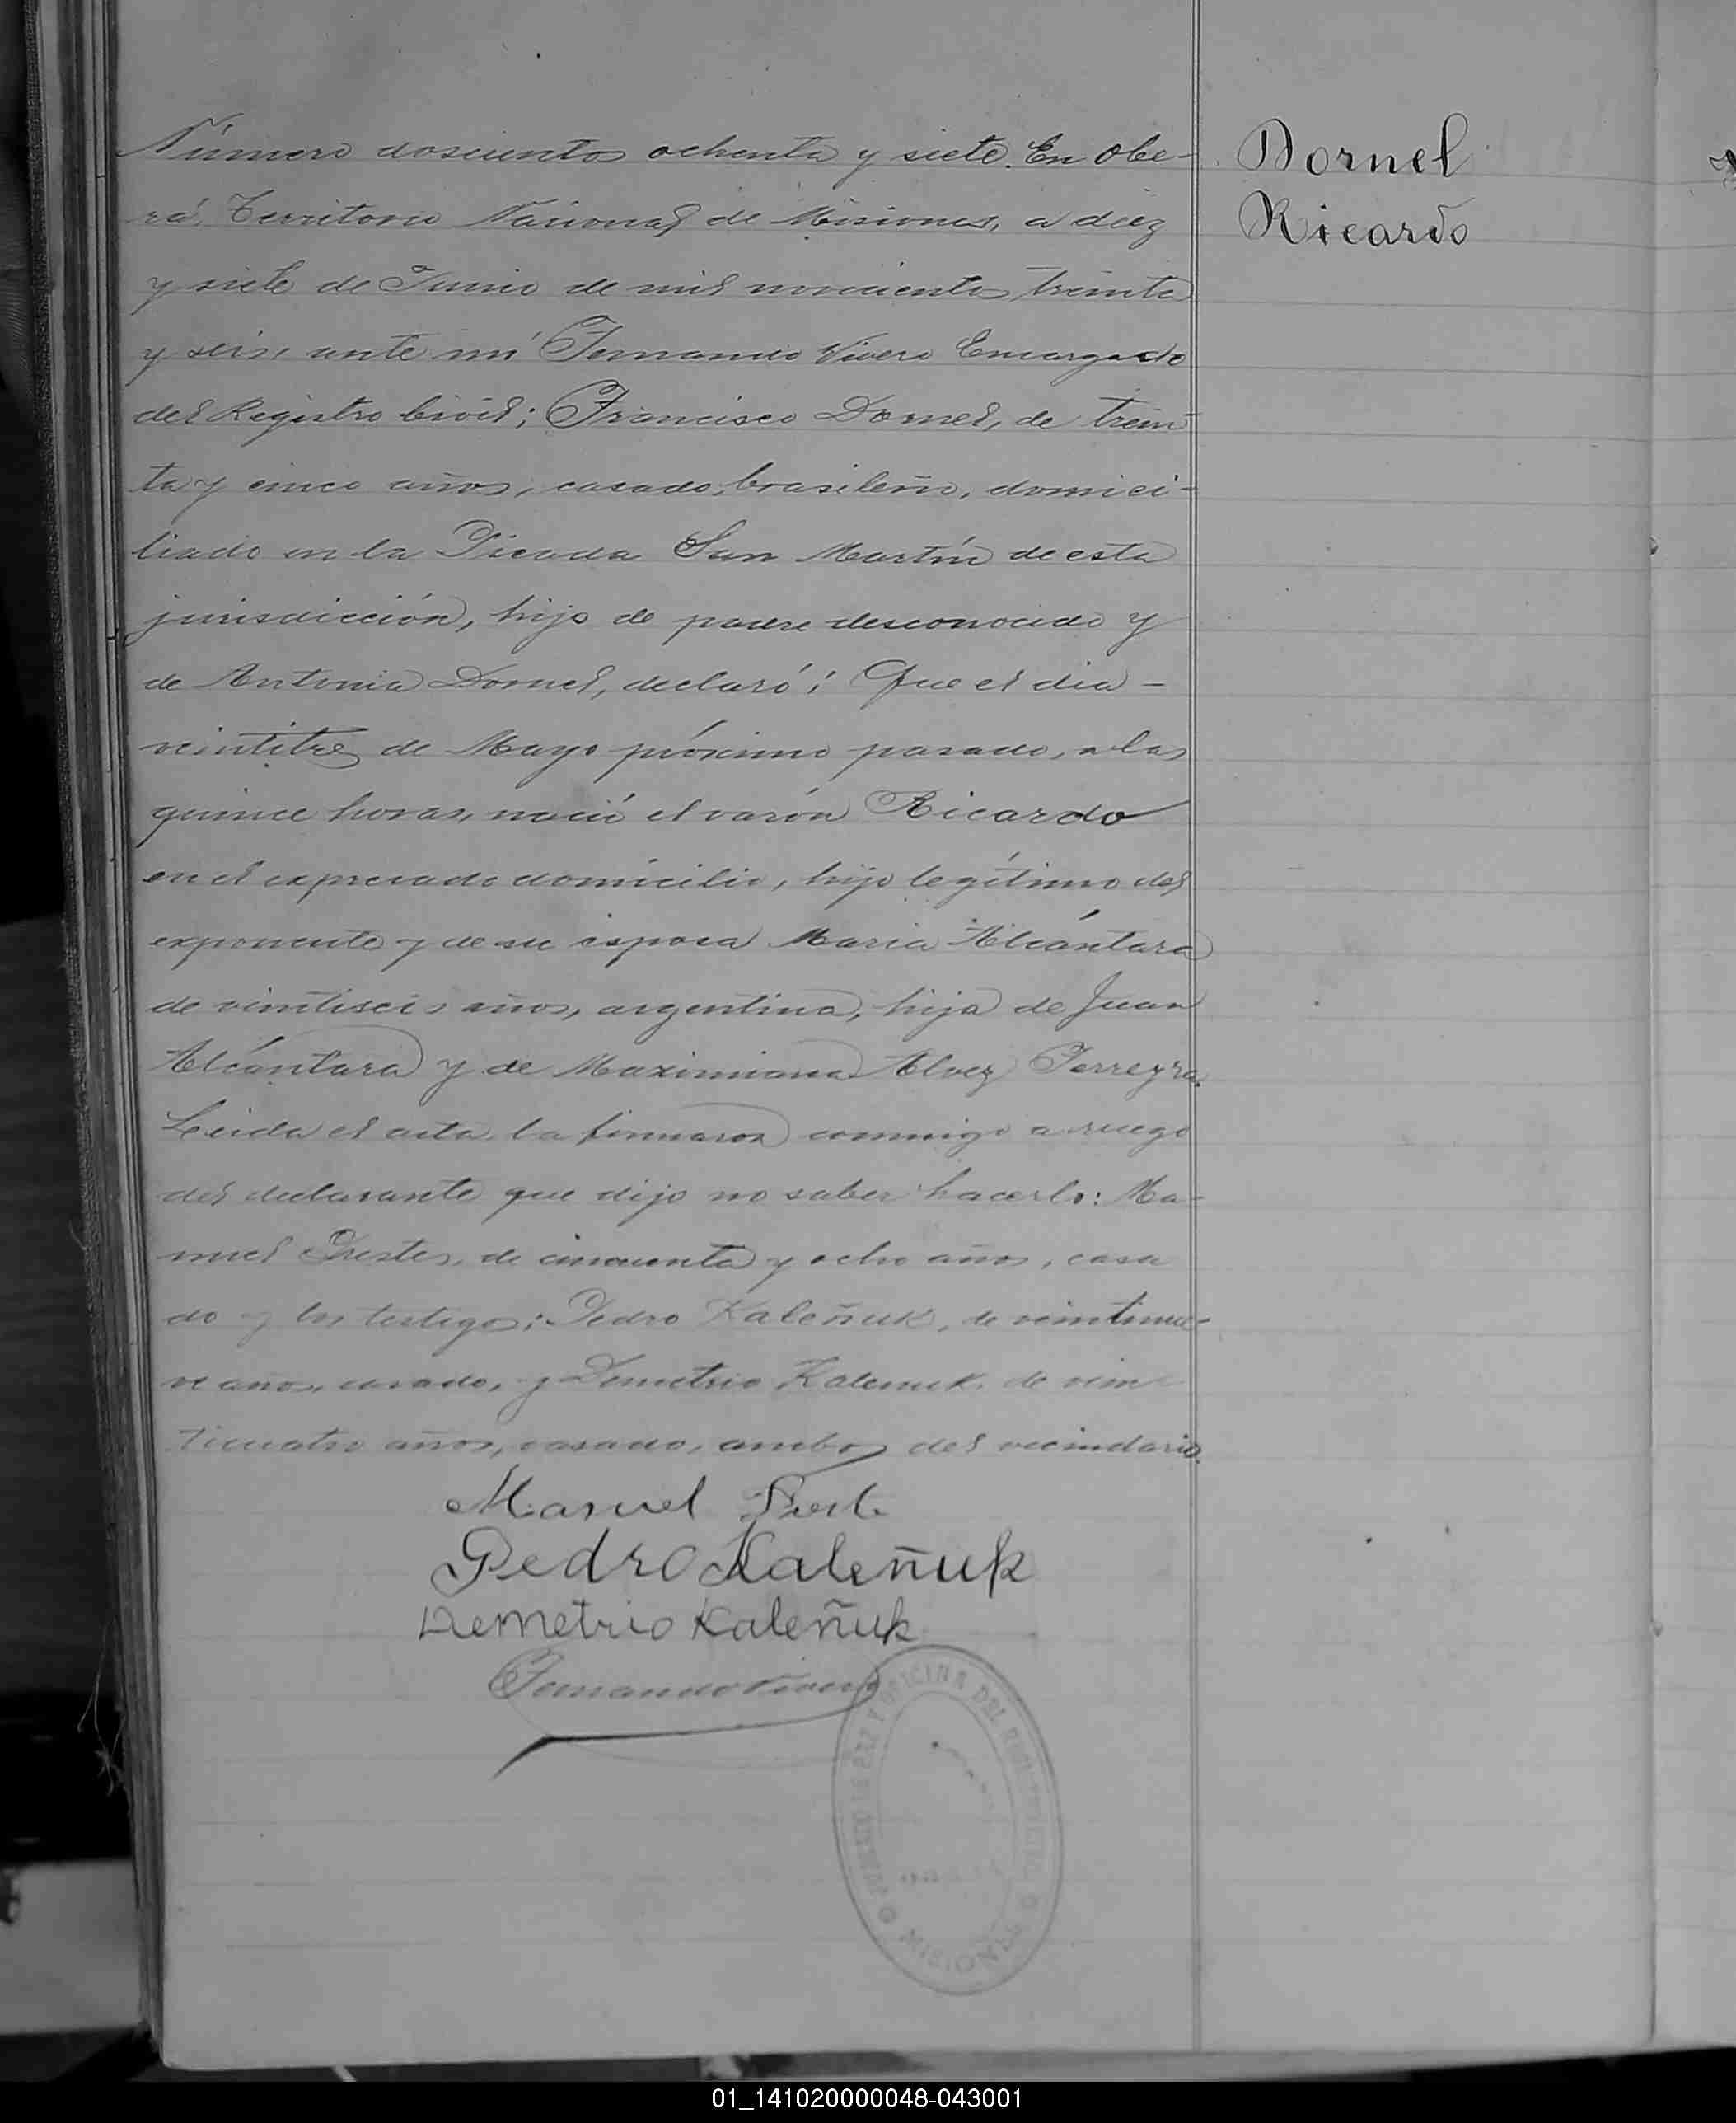 Número doscientos ochenta y siete. En Obe-
rá, Territorio Nacional de Misiones, a diez
y siete de Junio de mil novecientos treinta
y seis, ante mí Fernando Vivero Encargado
del Registro Civil; Francisco Dornel, de trein
ta y cinco años, casado, brasileño, domici-
liado en la Picada San Martín de esta
jurisdicción, hijo de padre desconocido y
de Antonia Dornel, declaró: Que el dia -
veintitres de Mayo próximo pasado, a las
quince horas, nació el varón Ricardo
en el expresado domicilio, hijo legítimo del
exponente y de su esposa Maria Alcántara
de veintiseis años, argentina, hija de Juan
Alcántara y de Maximiana Alvez Ferreyra.
Leida el acta la firmaron conmigo a ruego
del declarante que dijo no saber hacerlo: Ma-
nuel de cincuenta y ocho años, casa
do y los testigos: Pedro Kaleñuk, de veintinue-
ve años, casado, y Demetrio Kalenuk, de vein-
ticuatro años, casado, ambos del vecindario.
Manuel
Pedro Kaleñuk
Demetrio Kaleñuk
Fernando Vivero
DE PAZ Y OFICINA DEL
MISIONES
Dornel
Ricardo
01_141020000048-043001